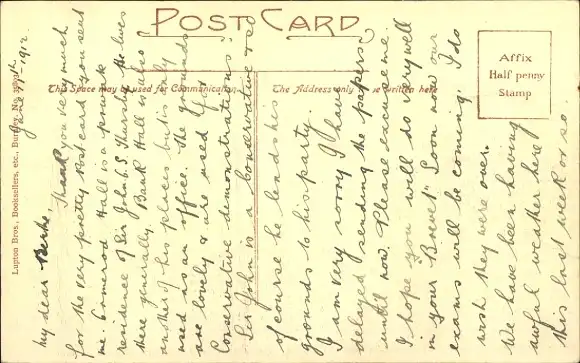 POST CARD
This Space may be used for Communication
The Address only to be written here
Affix
Half penny
Stamp
Lupton Bros., Booksellers, etc., Burnley. No.
June 1912
My dear
Thank you very much
for the very pretty post card you sent
me. Ormerod Hall is a
residence of Sir John O. S. Thursby. He lives
there generally. Bank Hall is also
another of his places but is only
used as an office. The grounds
are lovely & are used for
Conservative demonstrations.
Sir John is a Conservative & so
of course he lends his
grounds to his party.
I am very sorry I have
delayed sending the papers
until now. Please excuse me.
I hope you will do very well
in your "Brevet". Soon now our
exams will be coming. I do
wish they were over.
We have been having
awful weather here
this last week or so.